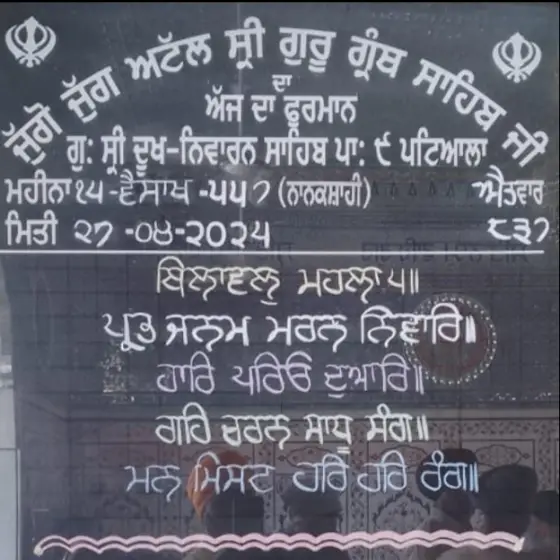 ਜੁੱਗੋ ਜੁੱਗ ਅਟੱਲ ਸ੍ਰੀ ਗੁਰੂ ਗ੍ਰੰਥ ਸਾਹਿਬ ਜੀ
ਦਾ
ਅੱਜ ਦਾ ਫੁਰਮਾਨ
ਗੁ: ਸ੍ਰੀ ਦੂਖ-ਨਿਵਾਰਨ ਸਾਹਿਬ ਪਾ: ੯ ਪਟਿਆਲਾ
ਮਹੀਨਾ ੧੫ -ਵੈਸਾਖ -੫੫੭ (ਨਾਨਕਸ਼ਾਹੀ) ਐਤਵਾਰ
ਮਿਤੀ ੨੭ -੦੪-੨੦੨੫ ੮੩੭
ਬਿਲਾਵਲੁ ਮਹਲਾ ੫॥
ਪ੍ਰਭ ਜਨਮ ਮਰਨ ਨਿਵਾਰਿ॥
ਹਾਰਿ ਪਰਿਓ ਦੁਆਰਿ॥
ਗਹਿ ਚਰਨ ਸਾਧੂ ਸੰਗ॥
ਮਨ ਮਿਸਟ ਹਰਿ ਹਰਿ ਰੰਗ॥